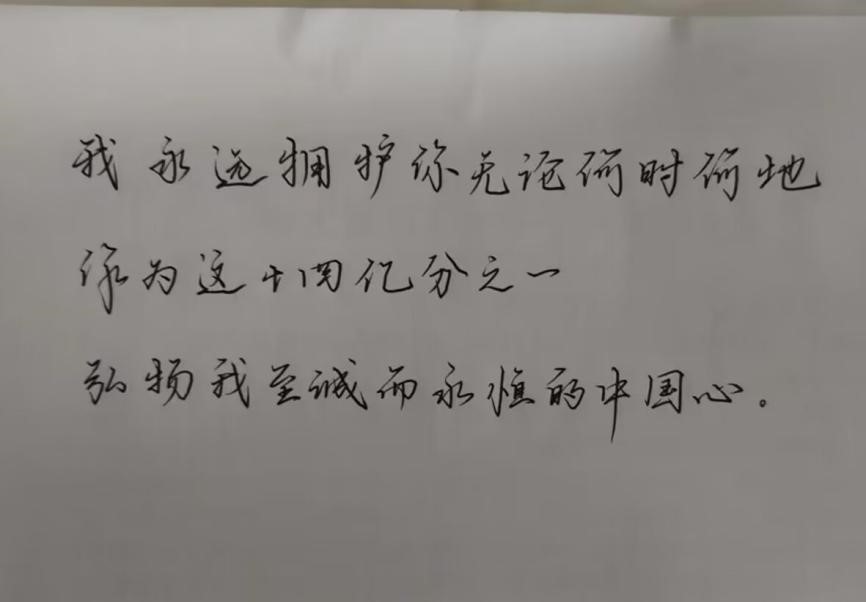 我永远拥护你无论何时何地
你为这十四亿分之一
弘扬我至诚而永恒的中国心。